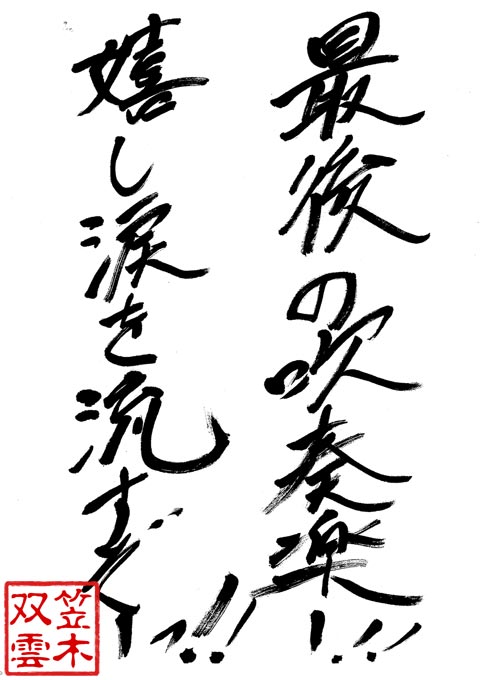 最後の吹奏楽!!!
嬉し涙を流すぞーっ!!
笠木
双雲